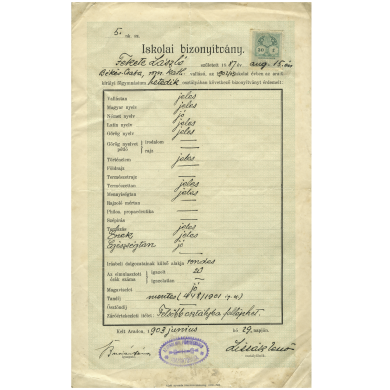 5.
Iskolai bizonyitvány.
Fekete László született 1887 év aug. 15-én
Békés-Csaba, róm. kath. vallású, az
királyi főgymnasium hetedik osztályában következő bizonyitványt érdemelt:
Vallástan jeles
Magyar nyelv jeles
Német nyelv jó
Latin nyelv jeles
Görög nyelv jeles
Görög nyelvet pótló irodalom —
rajz —
Történelem jeles
Földrajz —
Természetrajz —
Természettan jeles
Mennyiségtan jeles
Rajzoló mértan —
Philos. propaedeutika —
Szépírás —
Tornázás jeles
Ének jeles
Egészségtan jó
Irásbeli dolgozatainak külső alakja rendes
Az elmulasztott órák száma igazolt 20
igazolatlan —
Magaviselet jó
Tandíj mentes
Ösztöndíj —
Záróértekezleti ítélet: Felsőbb osztályba felléphet.
Kelt Aradon, 1903 junius hó 29. napján.